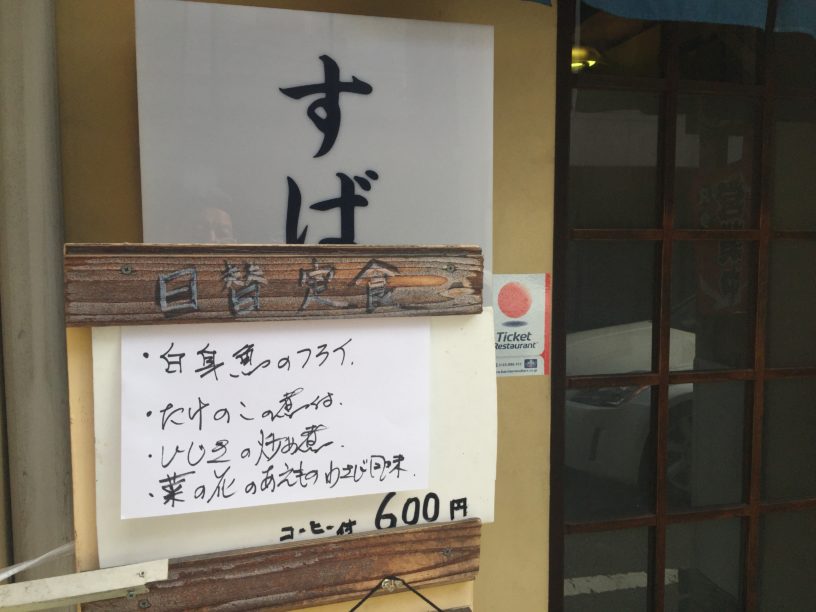 すば
日替定食
・白身魚のフライ.
・たけのこの煮付.
・ひじきの炒め煮.
・菜の花のあえものわさび風味.
コーヒー付 600円
Ticket
Restaurant